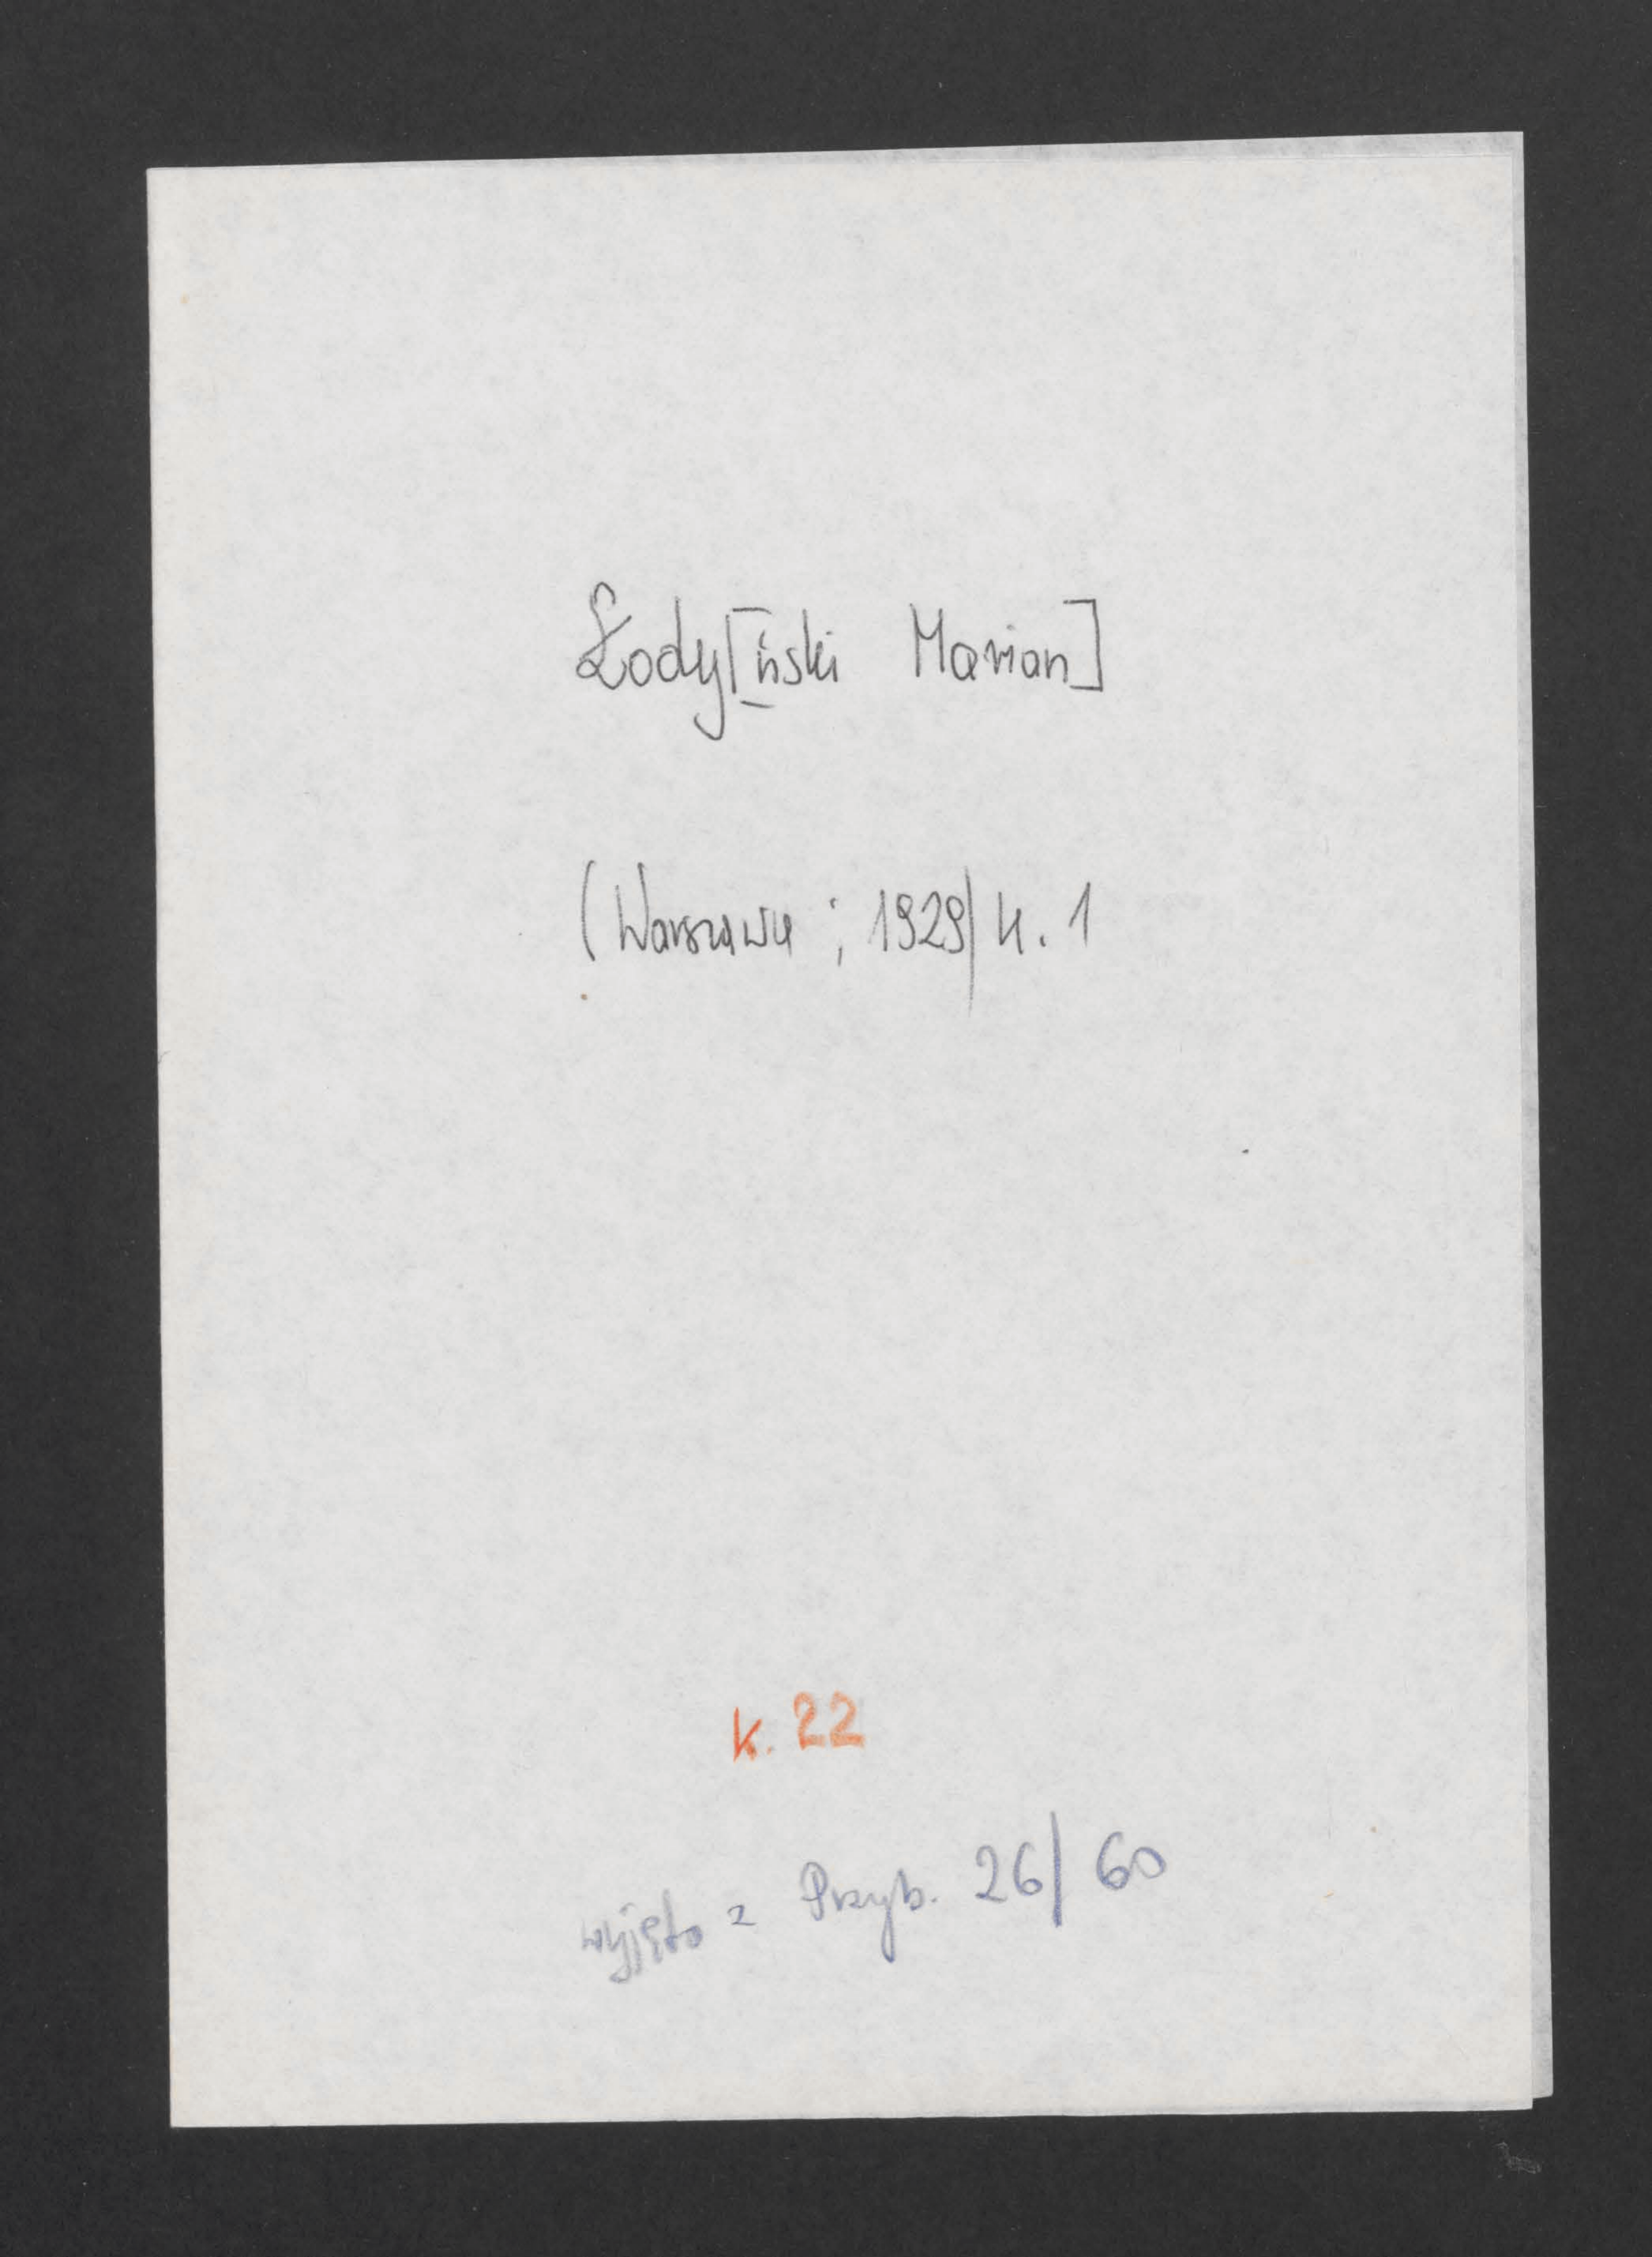 Łody[ński Marian]
(Warszawa ; 1929) k. 1
k. 22
wyjęto z Przyb. 26/60